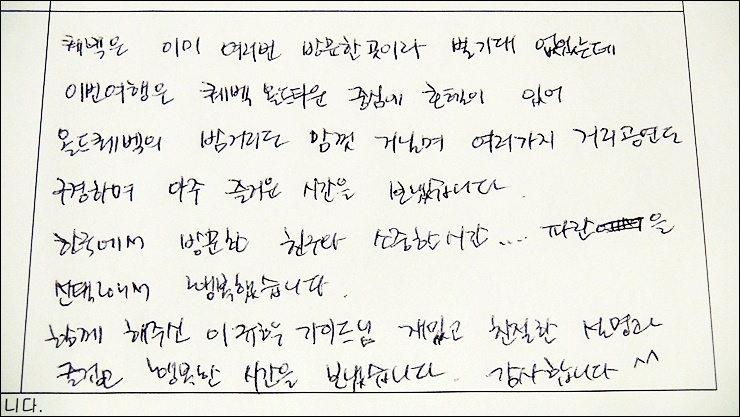 퀘벡은 이미 여러번 방문한 곳이라 별기대 없었는데
이번여행은 퀘벡 올드타운 중심에 호텔이 있어
올드퀘벡의 밤거리도 맘껏 거닐며 여러가지 거리공연도
구경하며 아주 즐거운 시간을 보냈습니다.
한국에서 방문한 친구와 소중한시간.... 파란을
선택해서 행복했습니다.
함께 해주신 가이드님 재밌고 친절한 설명과
행복한 시간을 보냈습니다. 감사합니다 ^^
니다.